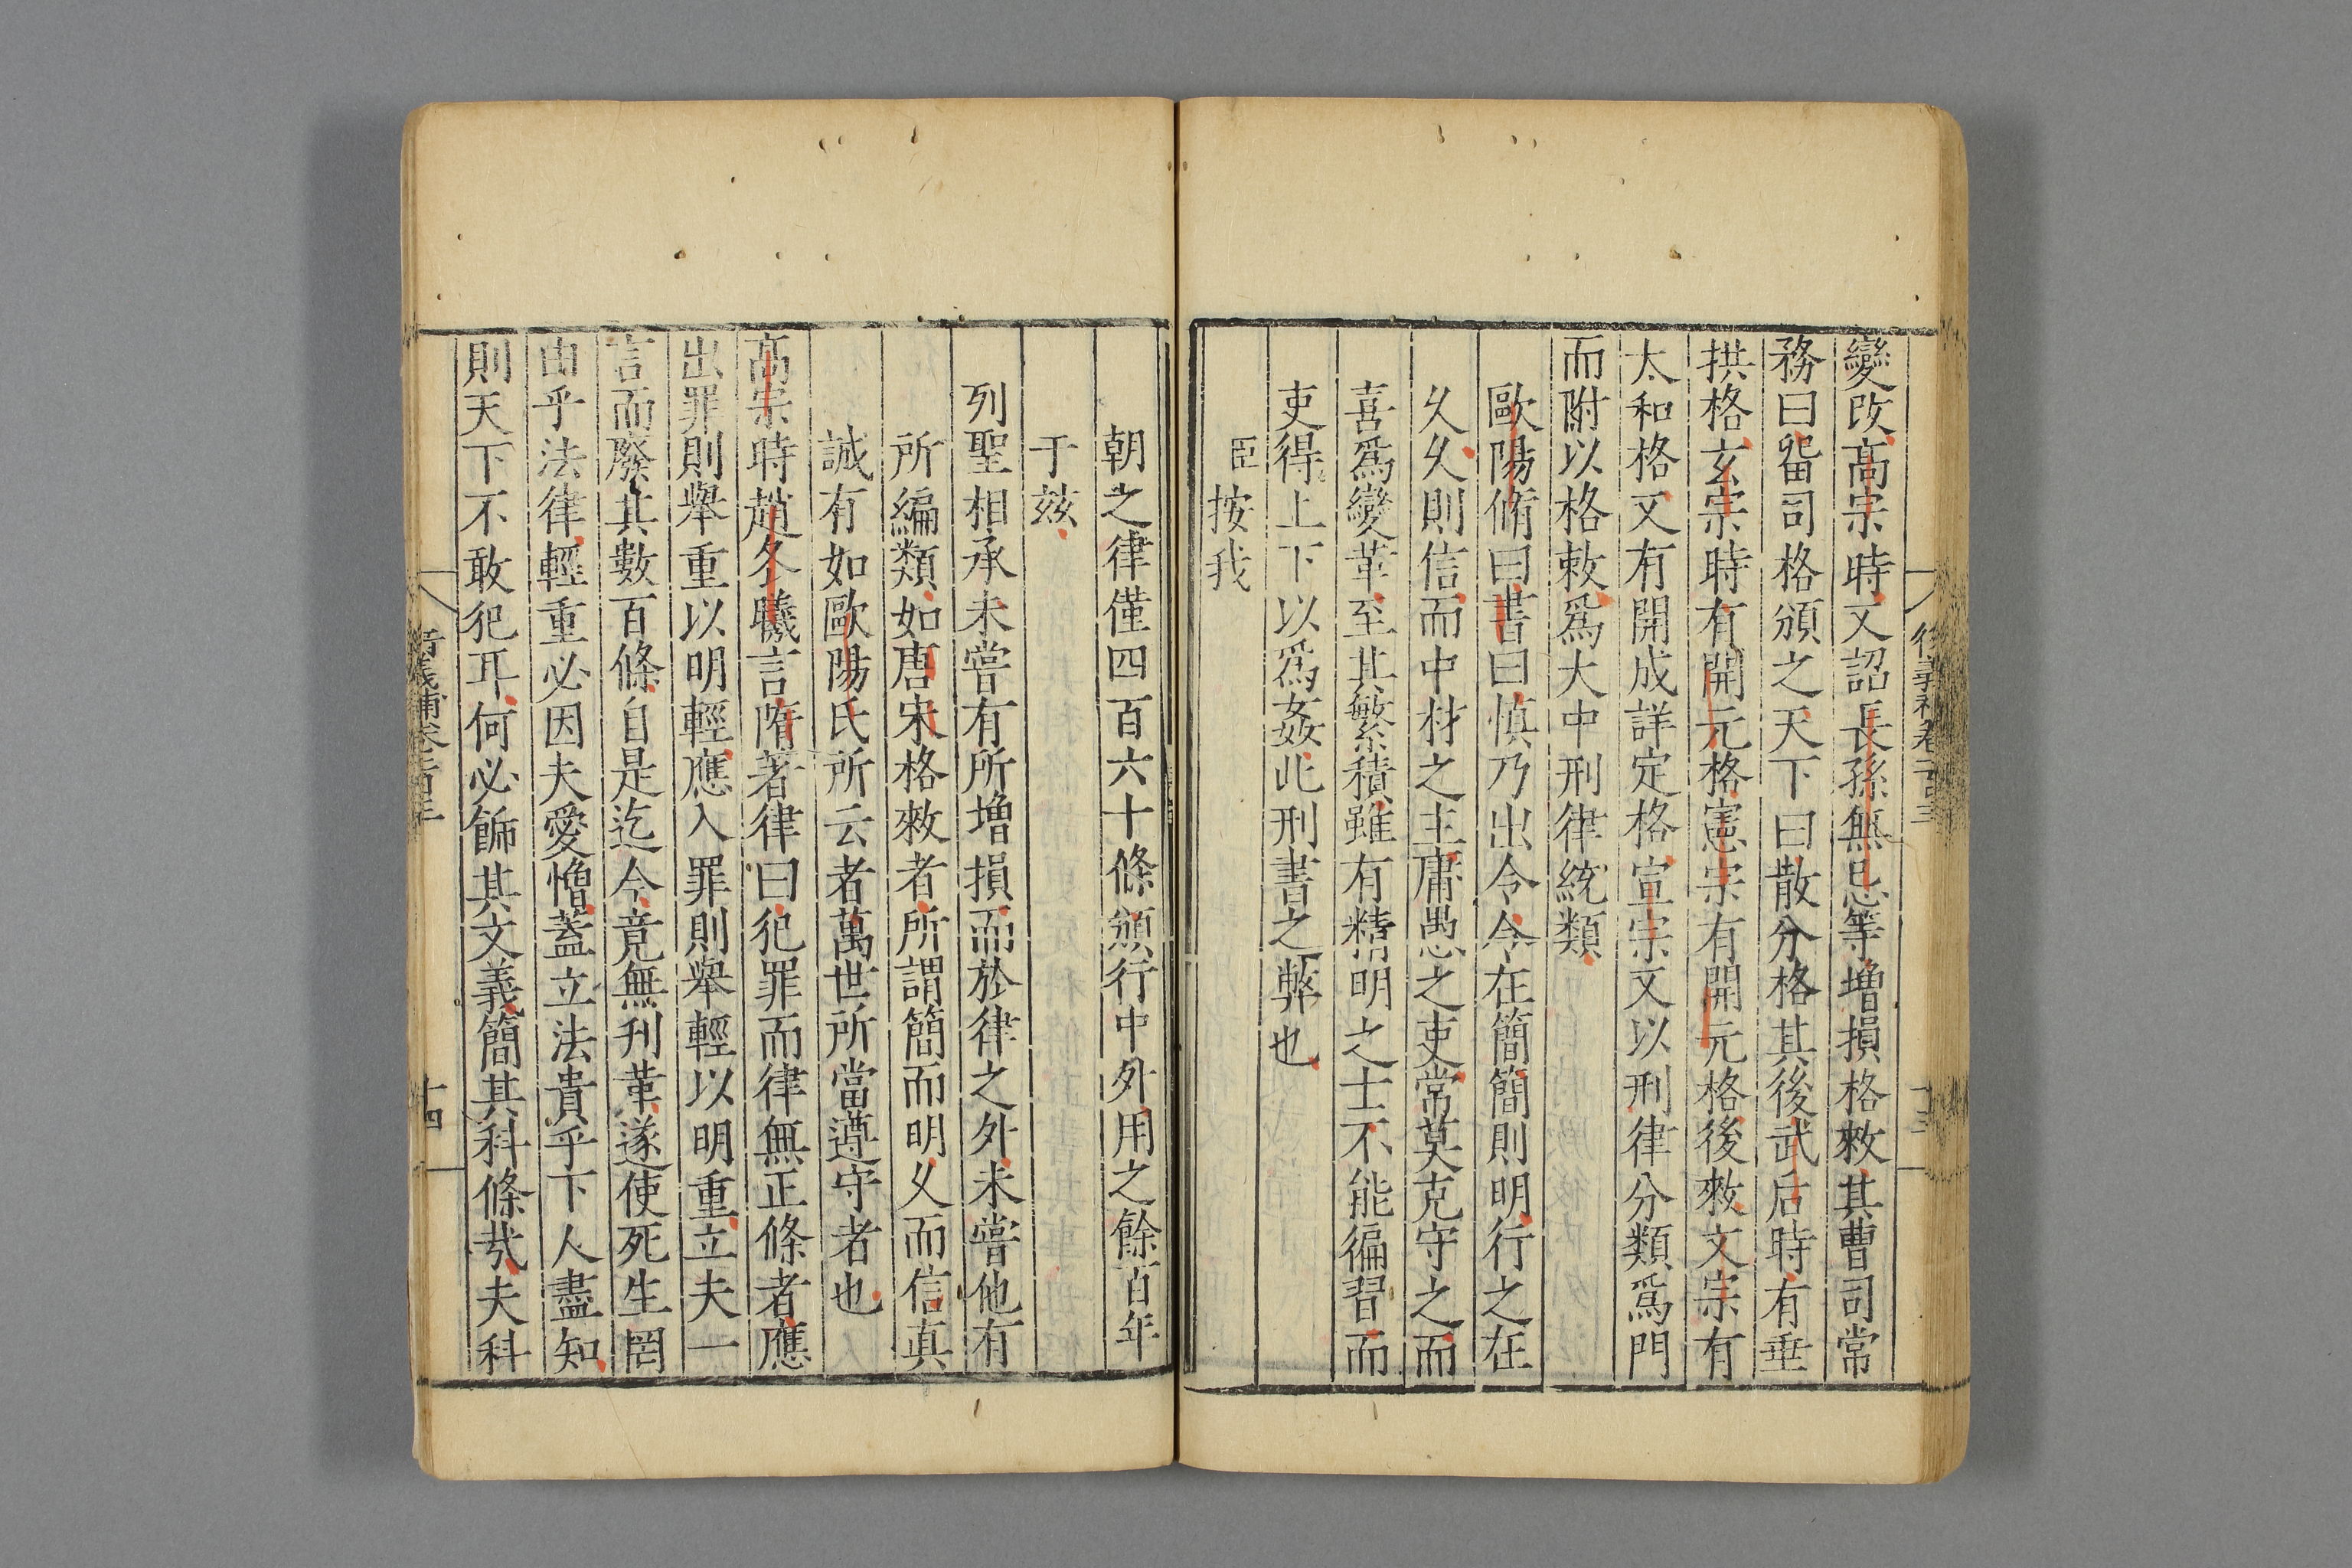 變改高宗時又詔長孫無忌等增損格敕其曹司常
務曰留司格頒之天下曰散分格其後武后時有垂
拱格玄宗時有開元格憲宗有開元格後敕文宗有
太和格又有開成詳定格宣宗又以刑律分類爲門
而附以格敕爲大中刑律統類
歐陽脩曰書曰慎乃出令令在簡簡則明行之在
久久則信而中材之主庸愚之吏常莫克守之而
喜爲變革至其繁積雖有精明之士不能徧習而
吏得上下以爲姦此刑書之弊也
臣按我
朝之律僅四百六十條頒行中外用之餘百年
于兹
列聖相承未嘗有所增損而於律之外未嘗他有
所編類如唐宋格敕者所謂簡而明久而信真
誠有如歐陽氏所云者萬世所當遵守者也
高宗時趙冬曦言隋著律曰犯罪而律無正條者應
出罪則舉重以明輕應入罪則舉輕以明重立夫一
言而廢其數百條自是迄今竟無刋革遂使死生罔
由乎法律輕重必因夫愛憎蓋立法貴乎下人盡知
則天下不敢犯耳何必飾其文義簡其科條哉夫科
十四